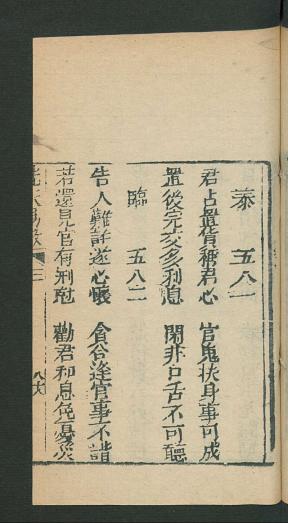 泰　五八一
君占置貨稱君心　官鬼扶身事可成
置後完交多利息　閑非口舌不可聽
臨　五八二
告人難許遂心懷　貪谷逢官事不諧
若還見官有刑尅　勸君和息免憂災
三